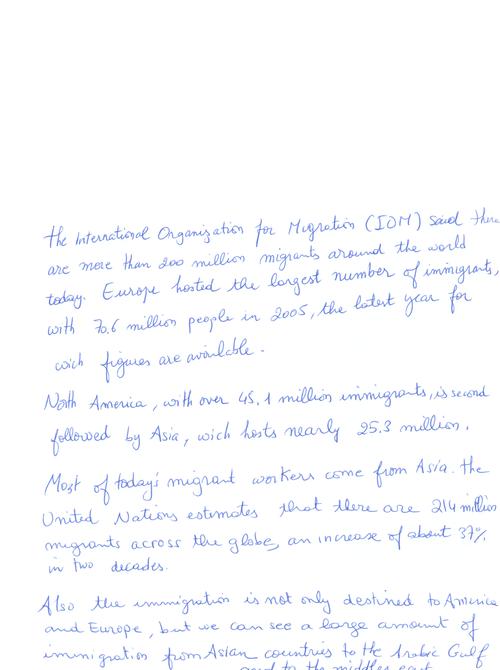 the International Organization for Migration (IOM) said there
are more than 200 million migrants around the world
today. Europe hosted the largest number of immigrants,
with 70.6 million people in 2005, the latest year for
wich figures are available.
North America, with over 45,1 million immigrants, is second
followed by Asia, wich hosts nearly 25.3 million.
Most of today's migrant workers come from Asia. the
United Nations estimates that there are 214 million
migrants across the globe, an increase of about 37%
in two decades.
Also the immigration is not only destined to America
and Europe, but we can see a large amount of
immigration from Asian countries to the Arabic Gulf
and to the middle east